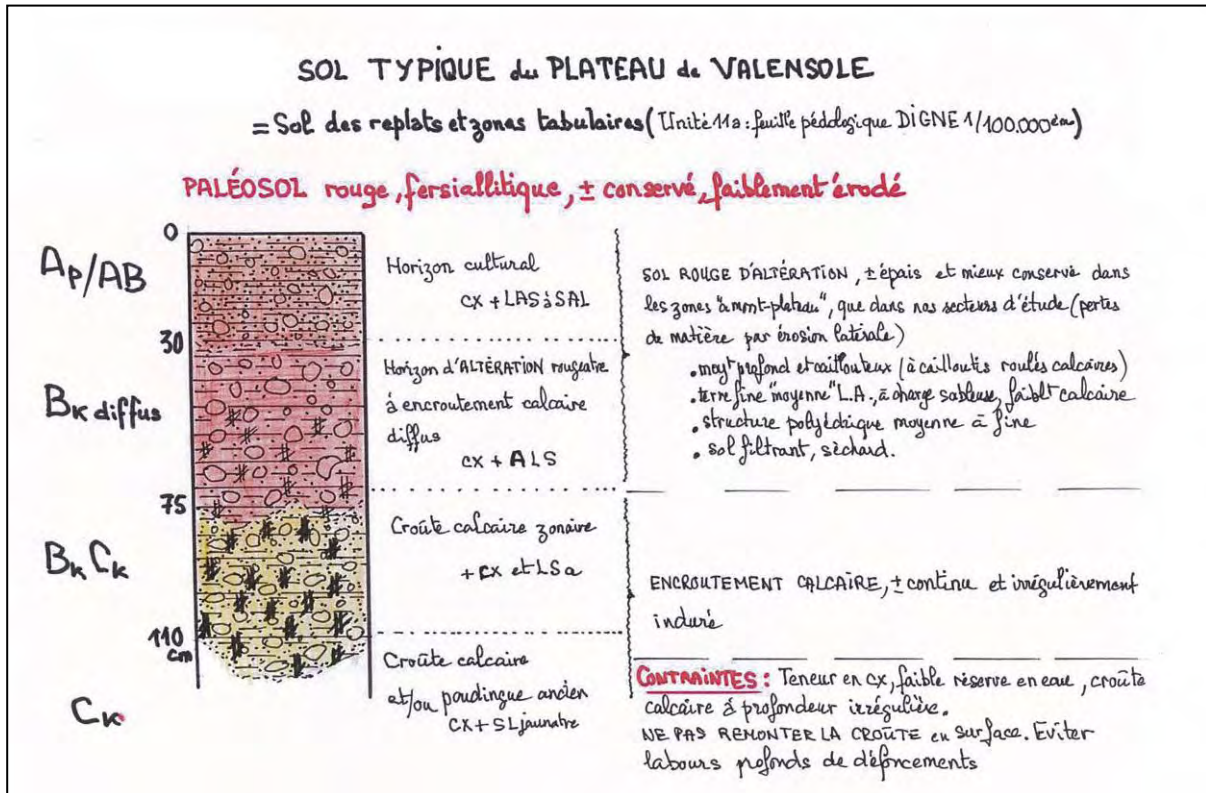 SOL TYPIQUE du PLATEAU de VALENSOLE
= Sol des replats et zones tabulaires (Unité 11a : feuille pédologique DIGNE 1/100.000ème)
PALÉOSOL rouge, fersiallitique, ± conservé, faiblement érodé
0
AP/AB
Horizon cultural
CX + LAS à SAL
30
BK diffus
Horizon d'ALTÉRATION rougeatre
à encroutement calcaire
diffus
CX + ALS
75
BK CK
Croûte calcaire zonaire
+ CX et LSa
110
cm
CK
Croûte calcaire
et/ou poudingue ancien
CX + SL jaunatre
SOL ROUGE D'ALTÉRATION, ± épais et mieux conservé dans
les zones "amont-plateau", que dans nos secteurs d'étude (pertes
de matière par érosion latérale)
• moyt profond et caillouteux (à cailloutis roulés calcaires)
• terre fine "moyenne" L.A., à charge sableuse, faiblt calcaire
• structure polyédrique moyenne à fine
• sol filtrant, sèchard.
ENCROUTEMENT CALCAIRE, ± continu et irrégulièrement
induré
CONTRAINTES : Teneur en CX, faible réserve en eau, croûte
calcaire à profondeur irrégulière.
NE PAS REMONTER LA CROÛTE en surface. Eviter
labours profonds de défoncements